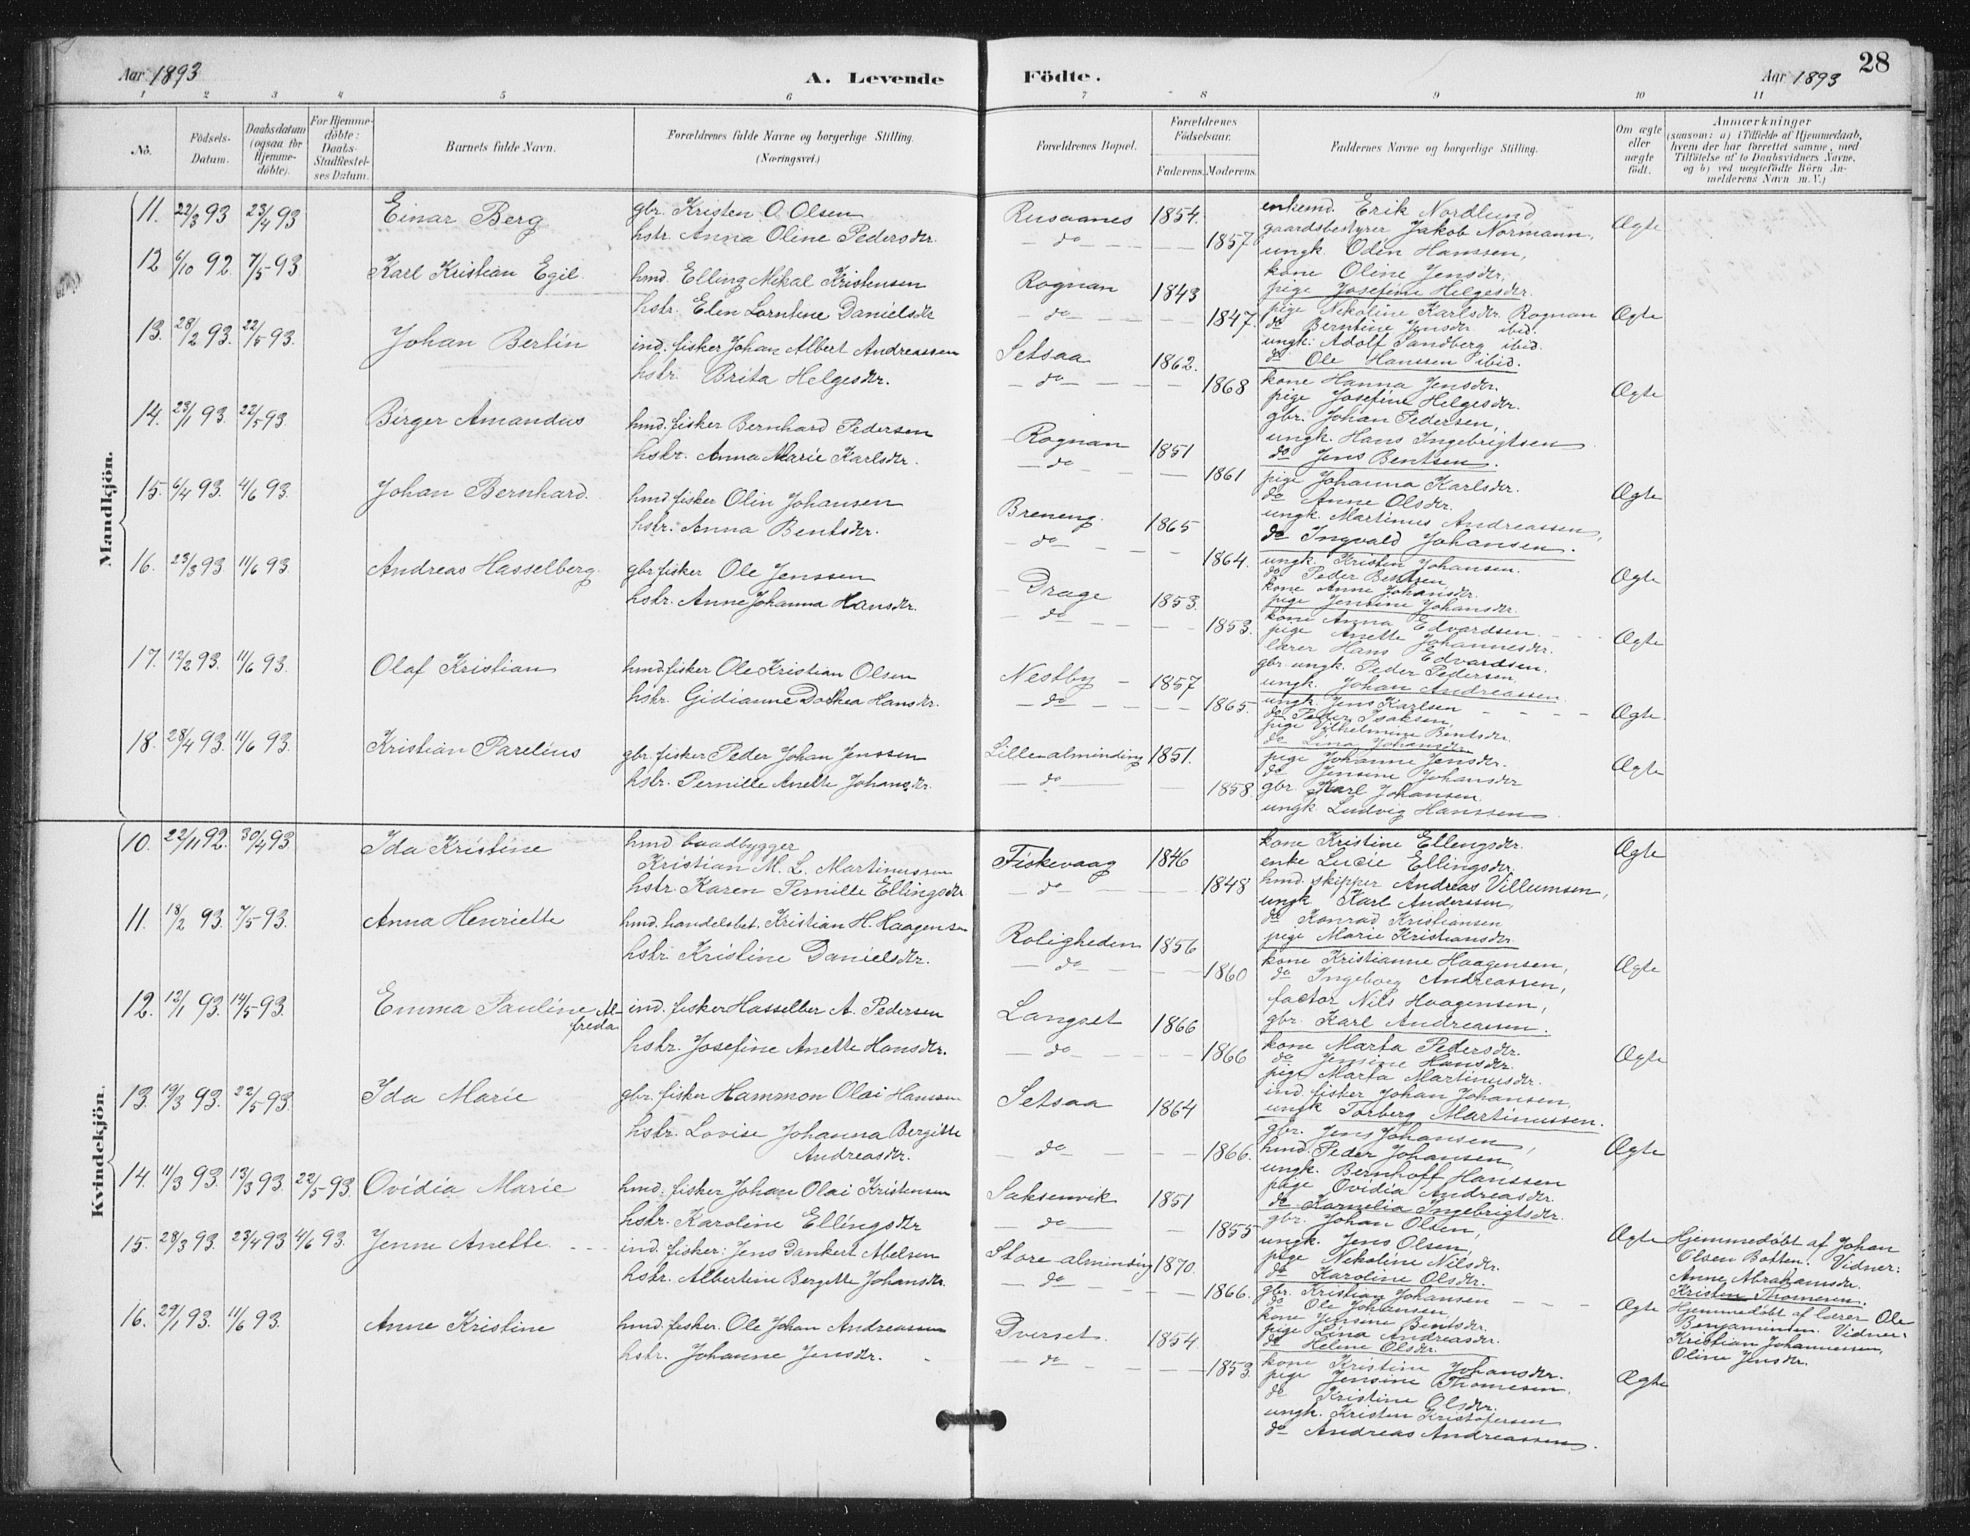 Aar 1893
A. Levende Födte.
Aar 1893
28
1 2 3 4 5 6 7 8 9 10 11
No.
Födsels-Datum.
Daabsdatum (ogsaa for Hjemme-döbte).
For Hjemme-döbte: Daabs-Stadfæstel-ses Datum.
Barnets fulde Navn.
Forældrenes fulde Navne og borgerlige Stilling. (Næringsvei.)
Forældrenes Bopæl.
Forældrenes Födselsaar.
Faderens. Moderens.
Faddernes Navne og borgerlige Stilling.
Om ægte eller uægte födt.
Anmærkninger
(saasom: a) i Tilfælde af Hjemmedaab, hvem der har forrettet samme, med Tilföielse af to Daabsvidners Navne, og b) ved uægtefödte Börn An-melderens Navn m. V.)
Mandkjön.
11. 22/3 93 23/4 93 Einar Berg
gbr. Kristen O. Olsen
hstr. Anna Oline Pedersdr.
Rusaanes 1854.
do 1857.
enkemd. Erik Nordlund
gaardsbestyrer Jakob Normann,
ungk. Odin Hanssen,
kone Oline Jensdr.
pige Josefine Helgesdr.
Ægte
12 6/10 92. 7/5 93. Karl Kristian Egil
hmd. Elling Mikal Kristensen
hstr. Elen Lorntine Danielsdr
Rognan 1843
do 1847.
pige Nekoline Karlsdr. Rognan
do Berntine Jensdr. ibid.
ungk. Adolf Sandberg ibid.
do Ole Hanssen ibid.
Ægte
13. 28/2 93. 22/5 93. Johan Berlin
ind. fisker Johan Albert Andreassen
hstr. Brita Helgesdr.
Setsaa 1862.
do 1868
kone Hanna Jensdr.
pige Josefine Helgesdr.
gbr. Johan Pedersen,
ungk. Hans Ingebrigtsen
do Jens Bentsen.
Ægte
14. 23/1 93. 22/5 93. Birger Amandus
hmd. fisker Bernhard Pedersen
hstr. Anna Marie Karlsdr.
Rognan 1851
do 1861
pige Johanna Karlsdr.
do Anne Olsdr.
ungk. Martinus Andreassen,
do Ingvald Johansen.
Ægte
15. 6/4 93. 4/6 93. Johan Bernhard.
hmd. fisker Olin Johansen
hstr. Anna Bentsdr.
Breneng. 1865
do 1864.
ungk. Kristen Johansen.
do Peder Bentsen
kone Anne Johansdr.
pige Jensine Johansdr.
Ægte
16. 23/3 93 11/6 93. Andreas Hasselberg.
gbr. fisker Ole Jenssen
hstr. Anne Johanna Hansdr.
Drage 1853.
do 1853.
kone Anna Edvardsen.
pige Anette Johannesdr.
lærer Hans Edvardsen.
gbr. ungk. Peder Pedersen,
ungk. Johan Andreassen
Ægte
17. 12/2 93. 11/6 93. Olaf Kristian
hmd. fisker Ole Kristian Olsen
hstr. Gidianne Dorthea Hansdr.
Nestby 1857
do 1865.
ungk. Jens Karlsen
do Peder Isaksen,
pige Vilhelmine Bentsdr.
do Lina Johansdr.
Ægte
18. 28/4 93. 11/6 93. Kristian Parelius
gbr. fisker Peder Johan Jenssen
hstr. Pernille Anette Johansdr.
Lillealminding 1851.
do 1858.
pige Johanne Jensdr.
do Jensine Johansdr
gbr Karl Johansen.
ungk. Ludvig Hanssen
Ægte
Kvindekjön.
10. 22/11 92. 30/4 93 Ida Kristine
hmd baadbygger
Kristian M. L. Martinussen
hstr Karen Pernille Ellingsdr
Fiskevaag 1846
do 1848
kone Kristine Ellingsdr.
enke Lucie Ellingsdr.
hmd. skipper Andreas Villumsen,
ungk Karl Anderssen,
do Konrad Kristiansen
pige Marie Kristiansdr.
Ægte
11. 18/2 93. 7/5 93. Anna Henriette
hmd. handelsbet. Kristian H. Haagensen
hstr Kristine Danielsdr.
Roligheden 1856
do 1860
kone Kristianne Haagensen,
do Ingeborg Andreassen,
factor Nils Haagensen,
gbr. Karl Andreassen.
Ægte
12. 12/1 93. 14/5 93. Emma Pauline Al-freda
ind. fisker Hasselber A. Pedersen
hstr. Josefine Anette Hansdr.
Langset 1866
do 1866
kone Marta Pedersdr.
do Jensine Hansdr.
pige Marta Martinusdr.
ind. fisker Johan Johansen,
ungk Torberg Martinussen.
Ægte
13. 19/3 93. 22/5 93. Ida Marie
gbr. fisker Hammon Olai Hanssen
hstr. Lovise Johanna Bergitte
Andreasdr.
Setsaa 1864
do 1866.
gbr. Jens Johansen,
hmd. Peder Johansen,
ungk. Bernhoff Hanssen
pige Ovidia Andreasdr.
do Kornelia Ingebrigtsdr.
Ægte
14. 11/3 93. 13/3 93. 22/5 93. Ovidia Marie
hmd. fisker Johan Olai Kristensen
hstr. Karoline Ellingsdr
Saksenvik 1851
do 1855
gbr. Johan Olsen,
ungk. Jens Olsen,
pige Nekoline Nilsdr.
do Karoline Olsdr.
Ægte
Hjemmedøbt af Johan
Olsen Botten. Vidner:
Anne Abrahamsdr.
Kristen Thomesen.
15. 28/3 93. 23/4 93 4/6 93. Jenne Anette
ind. fisker: Jens Dankert Abelsen
hstr. Albertine Bergette Johansdr.
Store-alminding 1870
do 1866.
gbr. Kristian Johansen
do Ole Johansen,
kone Jensine Bentsdr.
pige Lina Andreasdr.
do Helene Olsdr.
Ægte
Hjemmedøbt af lærer Ole
Benjaminsen. Vidner:
Kristian Johannessen,
Oline Jensdr.
16. 29/1 93. 11/6 93. Anne Kristine
hmd. fisker. Ole Johan Andreassen
hstr. Johanne Jensdr.
Dverset. 1854
do 1853.
kone Kristine Johansdr.
pige Jensine Thomesen.
do Kristine Olsdr.
ungk. Kristen Kristofersen
do Andreas Andreassen.
Ægte